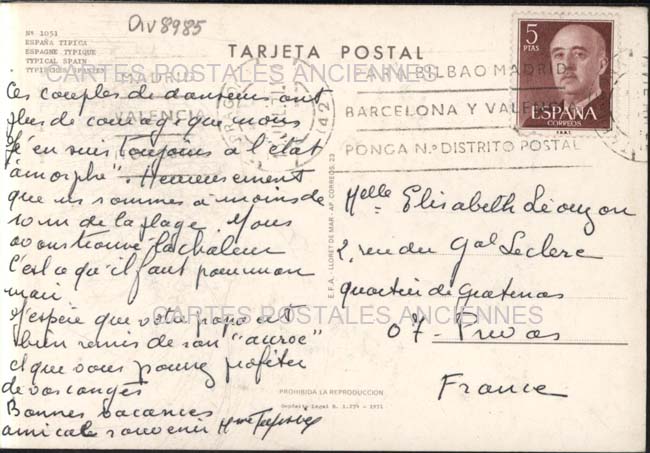 av8985
Nº 1051
ESPAÑA TIPICA
ESPAGNE TYPIQUE
TYPICAL SPAIN
TYPISCHES SPANIEN
TARJETA POSTAL
5
PTAS
ESPAÑA
CORREOS
F.N.M.T.
PARA BILBAO MADRID
BARCELONA Y VALENCIA
PONGA N.º DISTRITO POSTAL
MADRID
VALENCIA
CARTES POSTALES ANCIENNES
Ces couples de danseurs ont
plus de courage que nous
Je en suis toujours à l'état
"amorphe". Heureusement
que nous sommes à moins de
10 m de la plage. Nous
avons trouvé la chaleur
c'est ce qu'il faut pour mon
mari
J'espère que votre papa est
bien remis de son
et que vous pouvez profiter
de vos congés
Bonnes vacances
amical souvenir Mme
E.F.A. - LLORET DE MAR - AP. CORREOS, 23
Melle Elisabeth Léouzon
2, rue du Gal Leclerc
quartier de Gratenas
07 - Privas
France
CARTES POSTALES ANCIENNES
PROHIBIDA LA REPRODUCCION
Depósito Legal B. - 1971